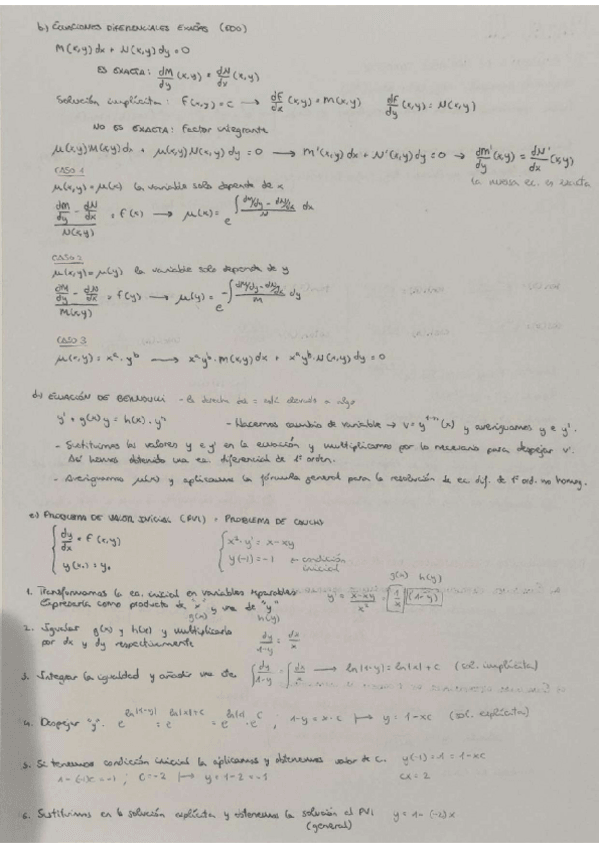 b) ECUACIONES DIFERENCIALES EXACTAS (EDO)
M(x,y)dx + N(x,y)dy = 0
ES EXACTA: dM/dy (x,y) = dN/dx (x,y)
Solución implícita: F(x,y) = C → dF/dx (x,y) = M(x,y) dF/dy (x,y) = N(x,y)
NO ES EXACTA: Factor integrante
μ(x,y)M(x,y)dx + μ(x,y)N(x,y)dy = 0 → M'(x,y)dx + N'(x,y)dy = 0 → dM'/dy (x,y) = dN'/dx (x,y)
la nueva ec. es exacta
CASO 1
μ(x,y) = μ(x) la variable solo depende de x
(dM/dy - dN/dx)/N(x,y) = f(x) → μ(x) = e^∫ (dM/dy - dN/dx)/N dx
CASO 2
μ(x,y) = μ(y) la variable solo depende de y
(dM/dy - dN/dx)/M(x,y) = f(y) → μ(y) = e^-∫ (dM/dy - dN/dx)/M dy
CASO 3
μ(x,y) = x^a · y^b → x^a y^b · M(x,y)dx + x^a y^b · N(x,y)dy = 0
d) ECUACIÓN DE BERNOULLI - la derecha del = está elevado a algo
y' + g(x)y = h(x) · y^n - Hacemos cambio de variable → v = y^(1-n) (x) y averiguamos y e y'.
- Sustituimos los valores y e y' en la ecuación y multiplicamos por lo necesario para despejar v'.
Así hemos obtenido una ec. diferencial de 1º orden.
- Averiguamos μ(x) y aplicamos la fórmula general para la resolución de ec. dif. de 1º ord. no homog.
e) PROBLEMA DE VALOR INICIAL (PVI) = PROBLEMA DE CAUCHY
{ dy/dx = F(x,y) { x² · y' = x - xy
y(x₀) = y₀ y(-1) = -1 ← condición
inicial
g(x) h(y)
1. Transformamos la ec. inicial en variables separables y' = (x-xy)/x² = 1/x (1-y)
Expresarla como producto de "x" y una de "y"
g(x) h(y)
2. Igualar g(x) y h(x) y multiplicarlo dy/(1-y) = dx/x
por dx y dy respectivamente
3. Integrar la igualdad y añadir una cte ∫ dy/(1-y) = ∫ dx/x → ln|1-y| = ln|x| + C (sol. implícita)
4. Despejar "y". e^(ln|1-y|) = e^(ln|x|+C) = e^(ln|x|) · e^C ; 1-y = x · C ↦ y = 1-xC (sol. explícita)
5. Si tenemos condición inicial la aplicamos y obtenemos valor de C. y(-1) = 1 = 1-xC
1-(-1)C = -1 ; C = -2 ↦ y = 1-2 = -1 Cx = 2
6. Sustituimos en la solución explícita y obtenemos la solución al PVI y = 1-(-2)x
(general)